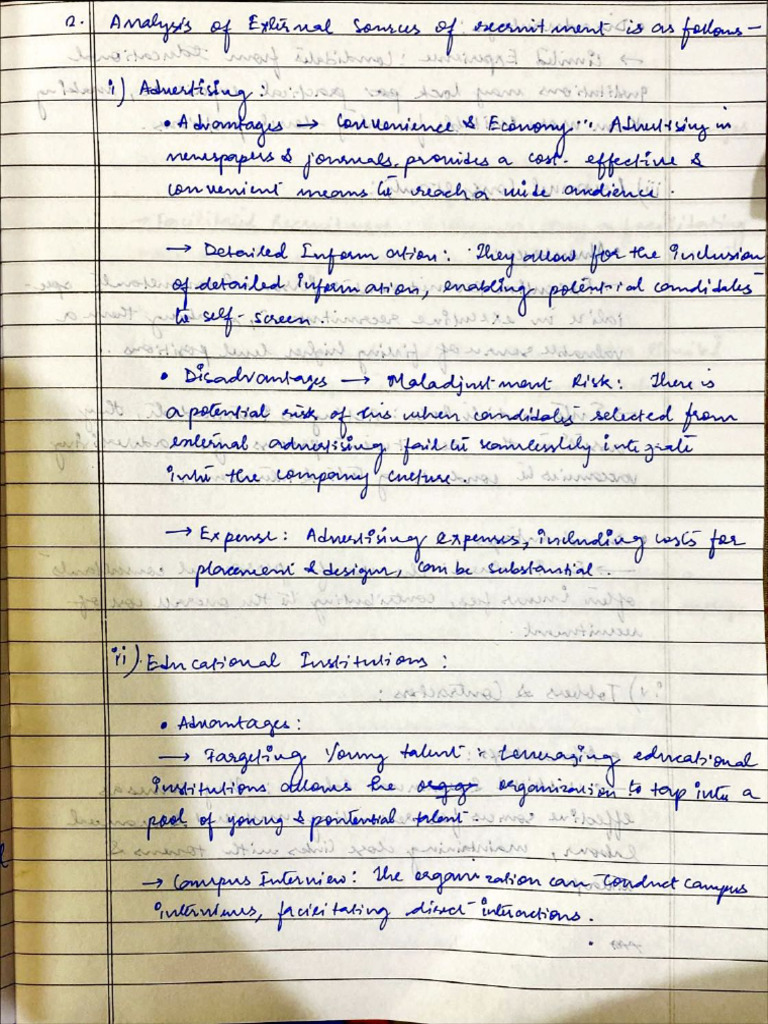 2. Analysis of External Sources of recruitment is as follows-
i) Advertising :
• Advantages → Convenience & Economy : Advertising in
newspapers & journals, provides a cost- effective &
convenient means to reach a wide audience .
→ Detailed Information : They allow for the inclusion
of detailed information, enabling potential candidates
to self- screen
• Disadvantages → Maladjustment Risk : There is
a potential risk of this when candidates selected from
external advertising fail to seamlessly integrate
into the company culture .
→ Expense : Advertising expenses, including costs for
placement & design, can be substantial .
ii) Educational Institutions :
• Advantages :
→ Targeting Young talent : Leveraging educational
institutions allows the organization to tap into a
pool of young & pontential talent .
→ Campus Interview : The organization can conduct campus
interviews, facilitating direct interactions .